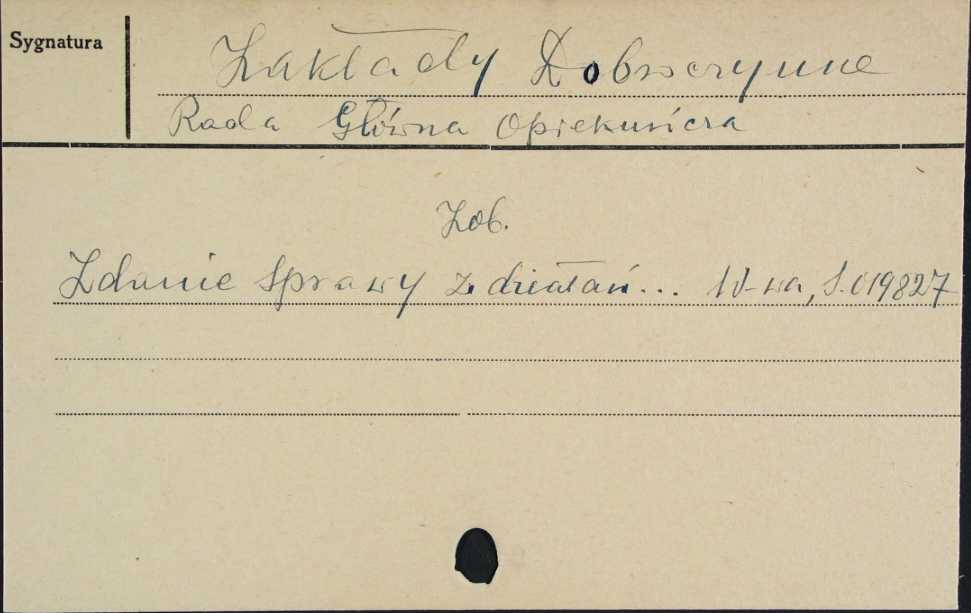 Sygnatura
Zakłady Dobroczynne
Rada Główna Opiekuńcza
Zob.
Zdanie sprawy z działań... W-wa, S.019827